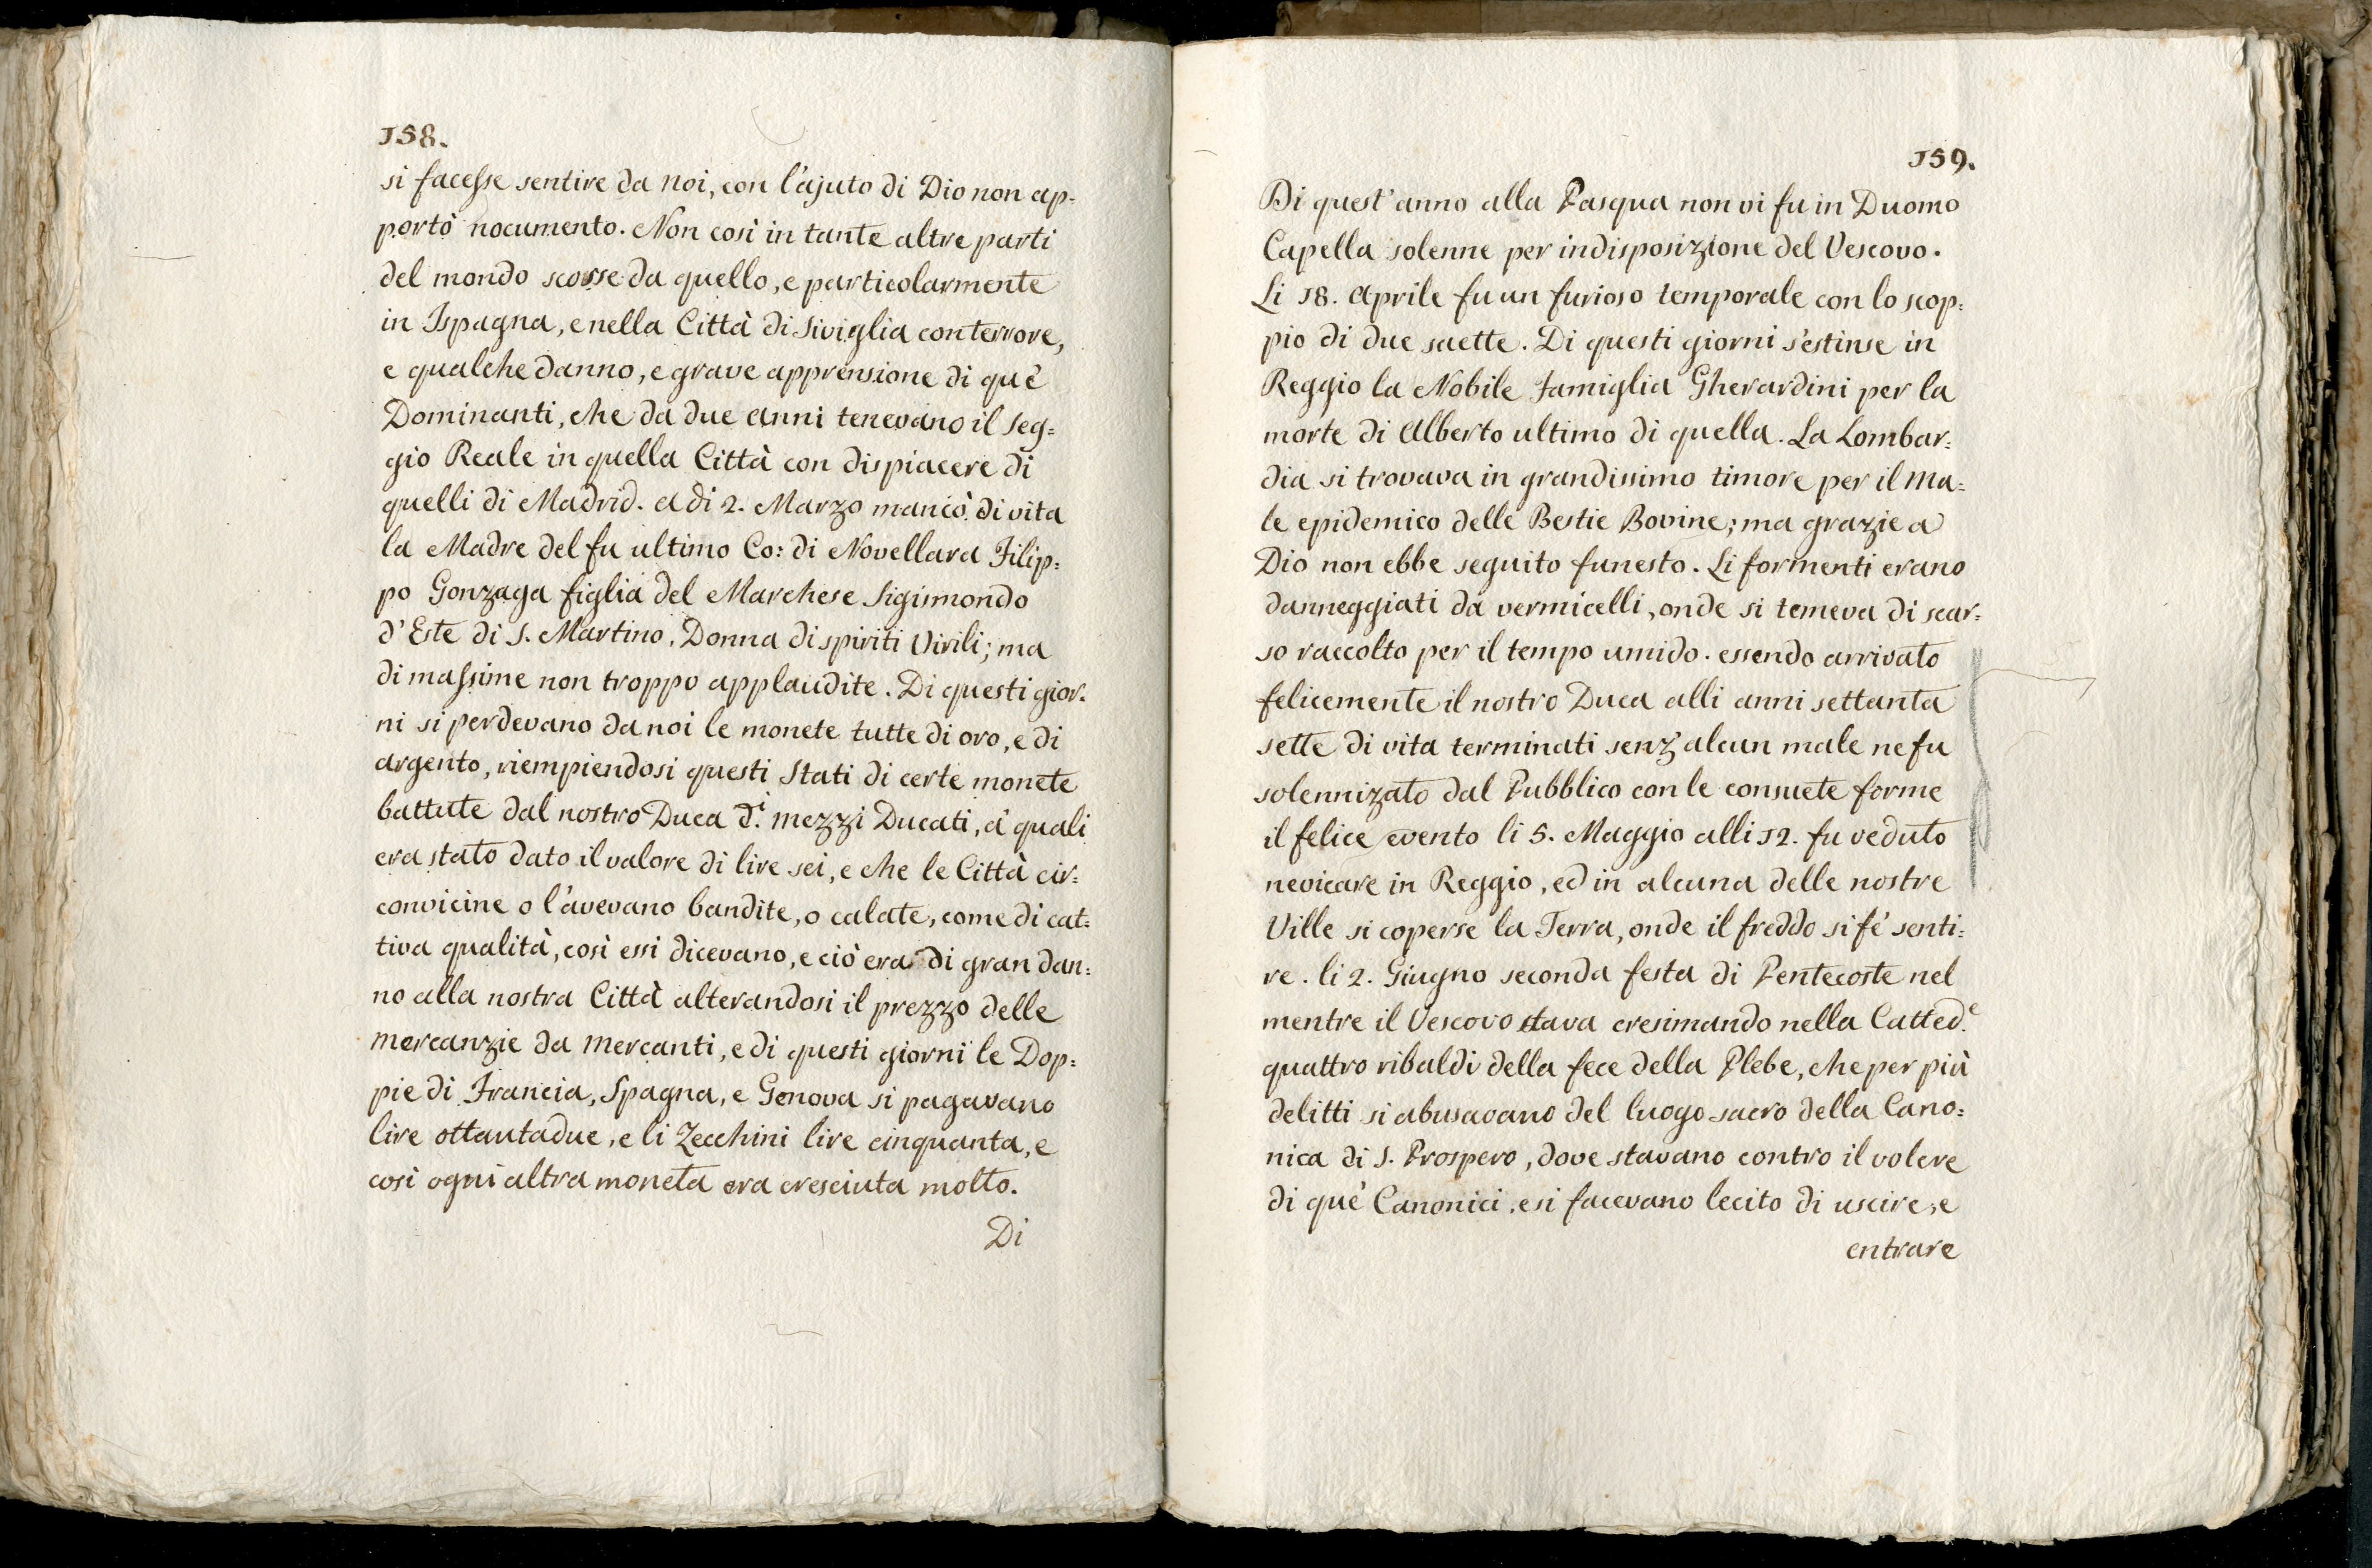 158.
si facesse sentire da noi, con l'ajuto di Dio non ap=
portò nocumento. Non così in tante altre parti
del mondo scosse da quello, e particolarmente
in Ispagna, e nella Città di Siviglia con terrore,
e qualche danno, e grave apprensione di que'
Dominanti, che da due anni tenevano il Seg=
gio Reale in quella Città con dispiacere di
quelli di Madrid. a di 2. Marzo mancò di vita
la Madre del fu ultimo Co: di Novellara Filip=
po Gonzaga figlia del Marchese Sigismondo
d'Este di S. Martino, Donna di spiriti Virili; ma
di massime non troppo applaudite. Di questi gior=
ni si perdevano da noi le monete tutte di oro, e di
argento, riempiendosi questi Stati di certe monete
battute dal nostro Duca d.i mezzi Ducati, a' quali
era stato dato il valore di lire sei, e che le Città cir=
convicine o l'avevano bandite, o calate, come di cat=
tiva qualità, così essi dicevano, e ciò era di gran dan=
no alla nostra Città alterandosi il prezzo delle
mercanzie da mercanti, e di questi giorni le Dop=
pie di Francia, Spagna, e Genova si pagavano
lire ottantadue, e li Zecchini lire cinquanta, e
così ogni altra moneta era cresciuta molto.
Di
159.
Di quest'anno alla Pasqua non vi fu in Duomo
Capella solenne per indisposizione del Vescovo.
Li 18. Aprile fu un furioso temporale con lo scop=
pio di due saette. Di questi giorni s'estinse in
Reggio la Nobile Famiglia Gherardini per la
morte di Alberto ultimo di quella. La Lombar=
dia si trovava in grandissimo timore per il ma=
le epidemico delle Bestie Bovine; ma grazie a
Dio non ebbe seguito funesto. Li formenti erano
danneggiati da vermicelli, onde si temeva di scar=
so raccolto per il tempo umido. essendo arrivato
felicemente il nostro Duca alli anni settanta
sette di vita terminati senz'alcun male ne fu
solennizato dal Pubblico con le consuete forme
il felice evento li 5. Maggio alli 12. fu veduto
nevicare in Reggio, ed in alcuna delle nostre
Ville si coperse la Terra, onde il freddo si fé senti=
re. li 2. Giugno seconda festa di Pentecoste nel
mentre il Vescovo stava cresimando nella Catted.e
quattro ribaldi della fece della Plebe, che per più
delitti si abusavano del luogo sacro della Cano=
nica di S. Prospero, dove stavano contro il volere
di que' Canonici, e si facevano lecito di uscire, e
entrare